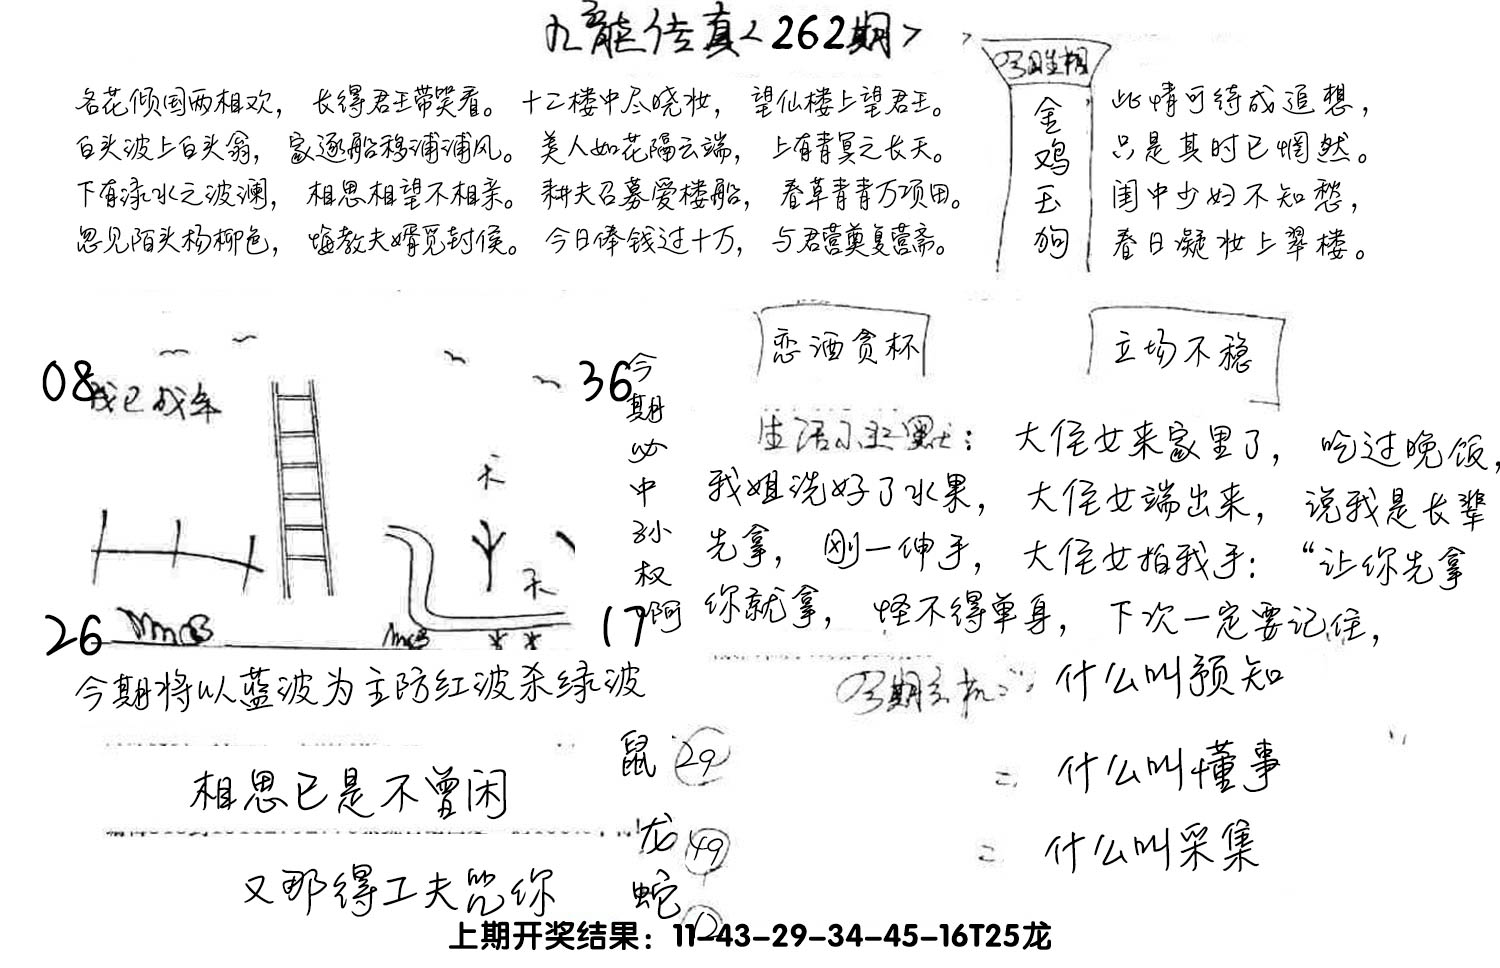 九龍传真<262期>
名花倾国两相欢，长得君王带笑看。十二楼中尽晓妆，望仙楼上望君王。
白头波上白头翁，家逐船移浦浦风。美人如花隔云端，上有青冥之长天。
下有渌水之波澜，相思相望不相亲。耕夫召募爱楼船，春草青青万项田。
忽见陌头杨柳色，悔教夫婿觅封侯。今日俸钱过十万，与君营奠复营斋。
金鸡玉狗
此情可待成追想，
只是其时已惘然。
闺中少妇不知愁，
春日凝妆上翠楼。
08
36
我已成年
天
天
26
17
今期必中孙权啊
恋酒贪杯
立场不稳
生活小幽默：大侄女来家里了，吃过晚饭，
我姐洗好了水果，大侄女端出来，说我是长辈
先拿，刚一伸手，大侄女拍我手：“让你先拿
你就拿，怪不得单身，下次一定要记住，
今期将以蓝波为主防红波杀绿波
什么叫预知
什么叫懂事
什么叫采集
相思已是不曾闲
又那得工夫咒你
鼠 29
龙 49
蛇 12
上期开奖结果：11-43-29-34-45-16T25龙